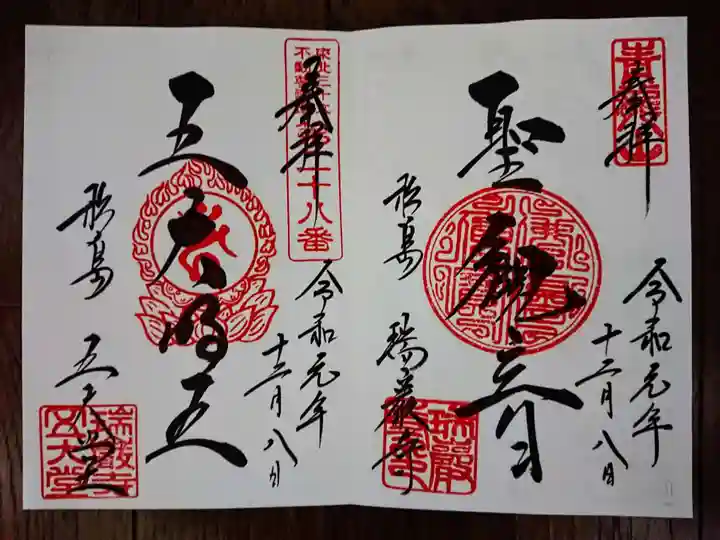 奉拝
令和元年
十二月八日
聖観世音
松島
瑞巌寺
瑞巌
奉拝
二十八番
令和元年
十二月八日
五大明王
松島
五大堂
瑞巌寺
五大堂